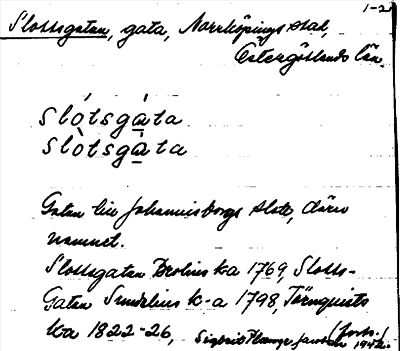 1-2
Slottsgatan, gata, Norrköpings stad,
Östergötlands län.
slótsgáta
slòtsgáta
Gatan till Johannisborgs slott, därav
namnet.
Slottsgatan Brolins ka 1769, Slotts-
Gatan Sundelius k-a 1798, Törnquists
ka 1822-26,
(forts.)
1942.